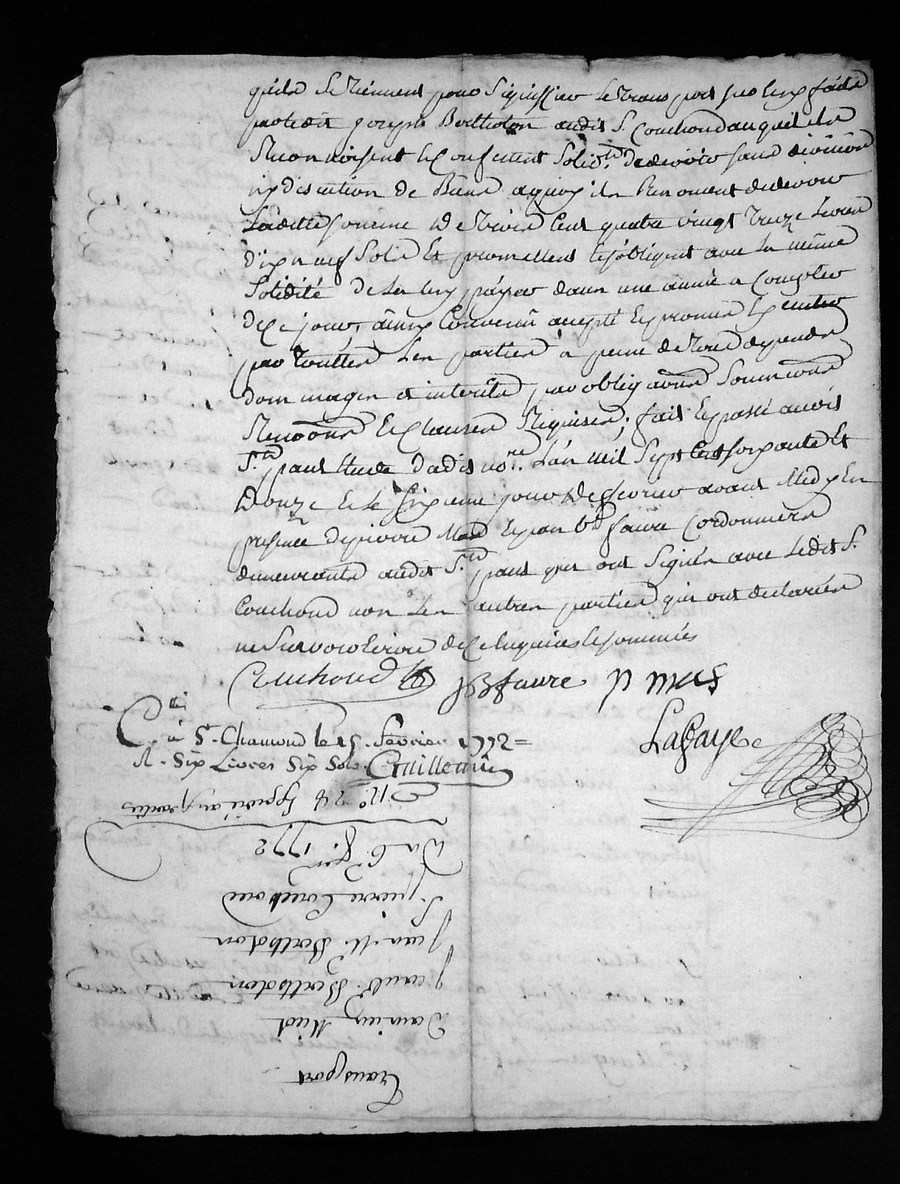 qu'ils se tiennent pour signiffier le transport par luy faite
par ledit joseph Bertholon audit S.r Couchoud auquel ils
se Reconnoissent et confessent solid.nt de devoir sans division
ny discution de Biens a quoy ils Renoncent de devoir
laditte somme de trois cent quatre vingt treize livres
dix neuf sols Et promettent et s'obligent avec la même
solidité de la luy payer dans une année a compter
de ce jour, ainsy convenu accepté et promis Executer
par touttes les parties a peine de tous depends
dommages et interêts par obligations soumissions
Renoons Et clauses Requises; fait et passé audit
S.t paul Etude dudit no.re L'an mil sept cent soixante Et
douze Et le sixieme jour de fevrier avant Midy En
presence de pierre Mas Et jean b.te faure Cordonniers
demeurants audit S.t paul qui ont signés avec ledit S.r
Couchoud non les autres parties qui ont declarées
ne savoir écrire de ce enquises et sommées
Couchoud JBfaure p mas
Lafaye
C.llé à S.t Chamond le 15. fevrier 1772=
R. Six Livres Six Sols Guillemin
N.o 24 Expedié aux parties
Du 6 f.er 1772
S. pierre Couchoud
Jean M. Bertholon
Jean B. Bertholon
Damien Miot
Transport